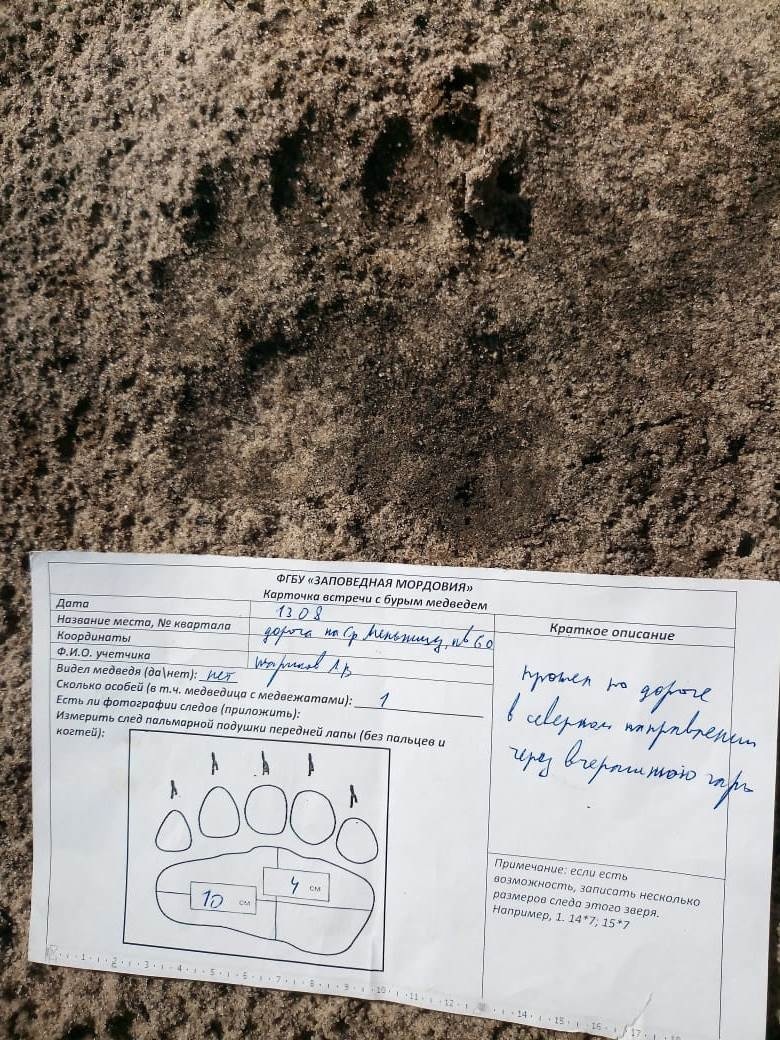 ФГБУ «ЗАПОВЕДНАЯ МОРДОВИЯ»
Карточка встречи с бурым медведем
Дата 1308
Название места, № квартала дорога на Ср. Мельницу, кв 60
Координаты
Ф.И.О. учетчика АВ
Видел медведя (да\нет): нет
Сколько особей (в т.ч. медведица с медвежатами): 1
Есть ли фотографии следов (приложить):
Измерить след пальмарной подушки передней лапы (без пальцев и
когтей):
10 см
4 см
Краткое описание
прошел по дороге
в северном направлении
через вчерашнюю гарь
Примечание: если есть
возможность, записать несколько
размеров следа этого зверя.
Например, 1. 14*7; 15*7
1 2 3 4 5 6 7 8 9 10 11 12 14 15 16 17 18